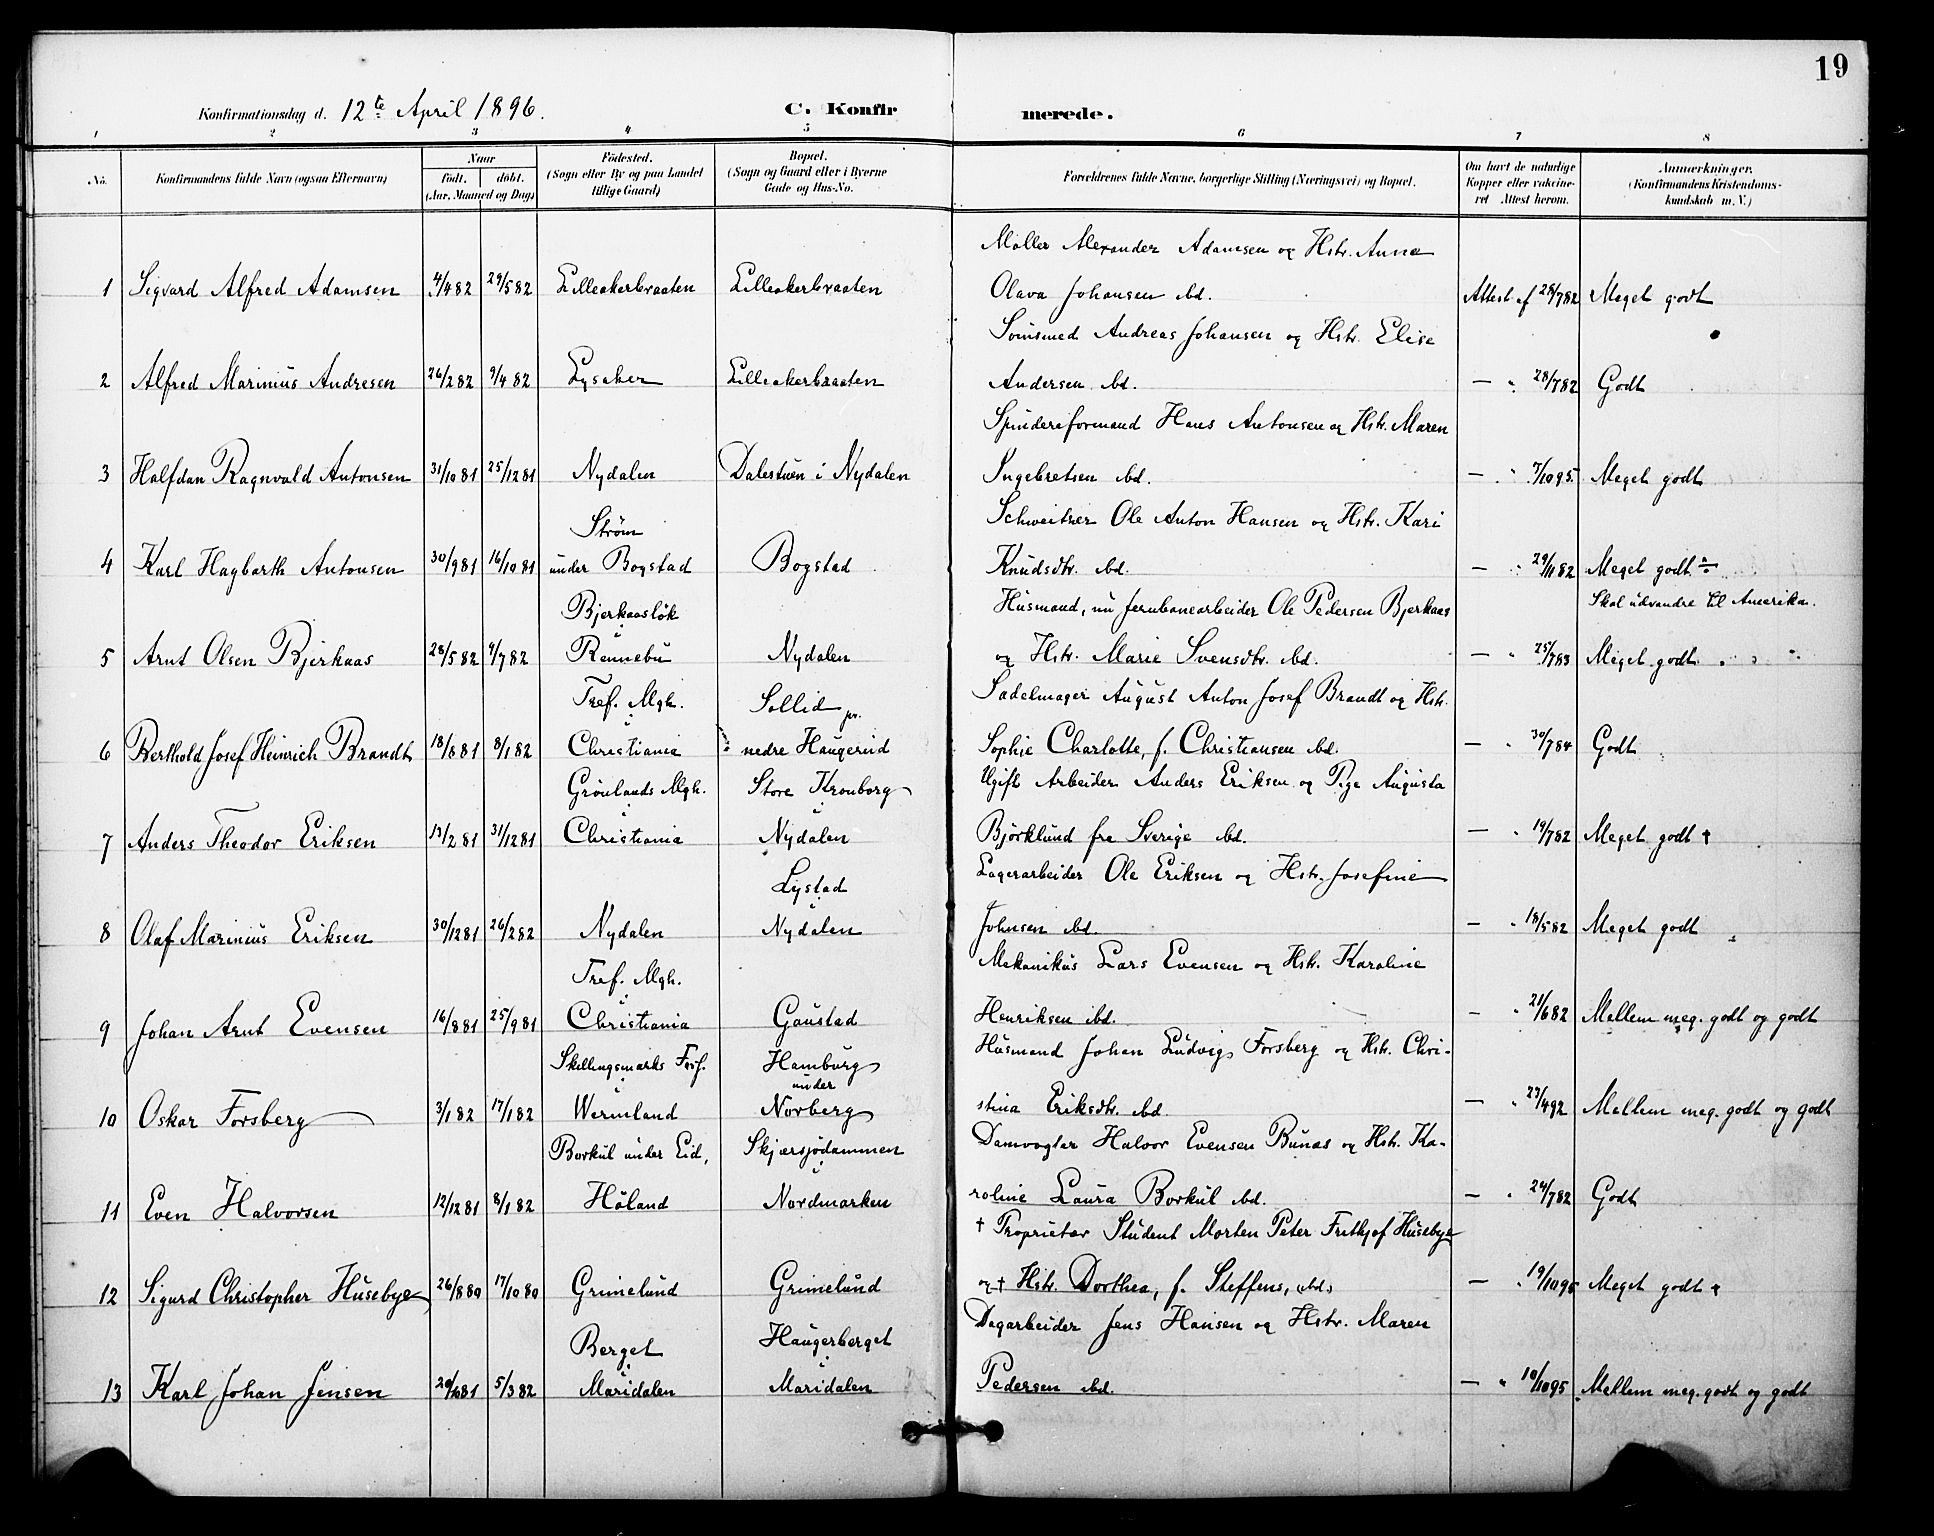 19
Konfirmationsdag d. 12te April 1896. C. Konfirmerede.
1 2 3 4 5 6 7 8
No. Konfirmandens fulde Navn (ogsaa Efternavn) Naar født. døbt. (Aar, Maaned og Dag) Fødested. (Sogn eller By og paa Landet tillige Gaard) Bopæl. (Sogn og Gaard eller i Byerne Gade og Hus-No. Forældrenes fulde Navne, borgerlige Stilling (Næringsvei) og Bopæl. Om havt de naturlige Kopper eller vakcineret Attest herom. Anmærkninger. (Konfirmandens Kristendomskundskab m. V.)
Møller Alexander Adamsen og Hstr. Anna
1 Sigvard Alfred Adamsen 4/4 82 29/5 82 Lilleakerbraaten Lilleakerbraaten Olava Johansen ibd. Attest af 28/7 82 Meget godt
Andreas Johansen og Hstr. Elise
2 Alfred Marinius Andresen 26/2 82 9/4 82 Lysaker Lilleakerbraaten Andersen ibd. — " 28/7 82 Godt
Spinderiformand Hans Antonsen og Hstr. Maren
3 Halfdan Ragnvald Antonsen 31/10 81 25/12 81 Nydalen Dalestuen i Nydalen Ingebretsen ibd. — " 7/10 95. Meget godt
Strøm Schweitser Ole Anton Hansen og Hstr. Kari
4 Karl Hagbarth Antonsen 30/9 81 16/10 81 under Bogstad Bogstad Knudsdtr. ibd. — " 29/11 82 Meget godt
Bjerkaasløk Husmand, nu Jernbanearbeider Ole Pedersen Bjerkaas Skal udvandre til Amerika.
5 Arnt Olsen Bjerkaas 28/5 82 9/7 82 i Rennebu Nydalen og Hstr. Marie Svensdtr. ibd. — " 25/7 83 Meget godt
Tref. Mgh. Sollid pr. Sadelmager August Anton Josef Brandt og Hstr.
6 Berthold Josef Heinrich Brandt 18/8 81 8/1 82 i Christiania nedre Haugerud Sophie Charlotte, f. Christiansen ibd. — " 30/7 84 Godt
Grønlands Mgh. Store Kronborg Ugift Arbeider Anders Eriksen og Pige Augusta
7 Anders Theodor Eriksen 13/2 81 31/12 81 i Christiania i Nydalen Bjørklund fra Sverige ibd. — " 19/7 82 Meget godt +
Lystad Lagerarbeider Ole Eriksen og Hstr. Josefine
8 Olaf Marinius Eriksen 30/12 81 26/2 82 Nydalen i Nydalen Johnsen ibd. — " 18/5 82 Meget godt
Tref. Mgh. Mekanikus Lars Evensen og Hstr. Karoline
9 Johan Arnt Evensen 16/8 81 25/9 81 i Christiania Gaustad Henriksen ibd. — " 21/6 82 Mellem meg. godt og godt
Skillingsmarks Fors. Hamburg Husmand Johan Ludvig Forsberg og Hstr. Chri-
10 Oskar Forsberg 3/1 82 17/1 82 i Wermland under Norberg stina Eriksdtr. ibd. — " 23/4 92 Mellem meg. godt og godt
Borkül under Eid, Skjærsjødammen Damvogter Halvor Evensen Bunas og Hstr. Ka-
11 Even Halvorsen 12/12 81 8/1 82 Høland i Nordmarken roline Laura Borkül ibd. — " 24/7 82 Godt
† Proprietær Student Morten Peter Frithjof Husebye
12 Sigurd Christopher Husebye 26/8 80 17/10 80 Grimelund Grimelund og † Hstr. Dorthea, f. Steffens, ibd. — " 19/10 95 Meget godt
Berget Haugerberget Dagarbeider Jens Hansen og Hstr. Maren
13 Karl Johan Jensen 5/3 82 i Maridalen i Maridalen Pedersen ibd. — " 10/10 95 Mellem meg. godt og godt